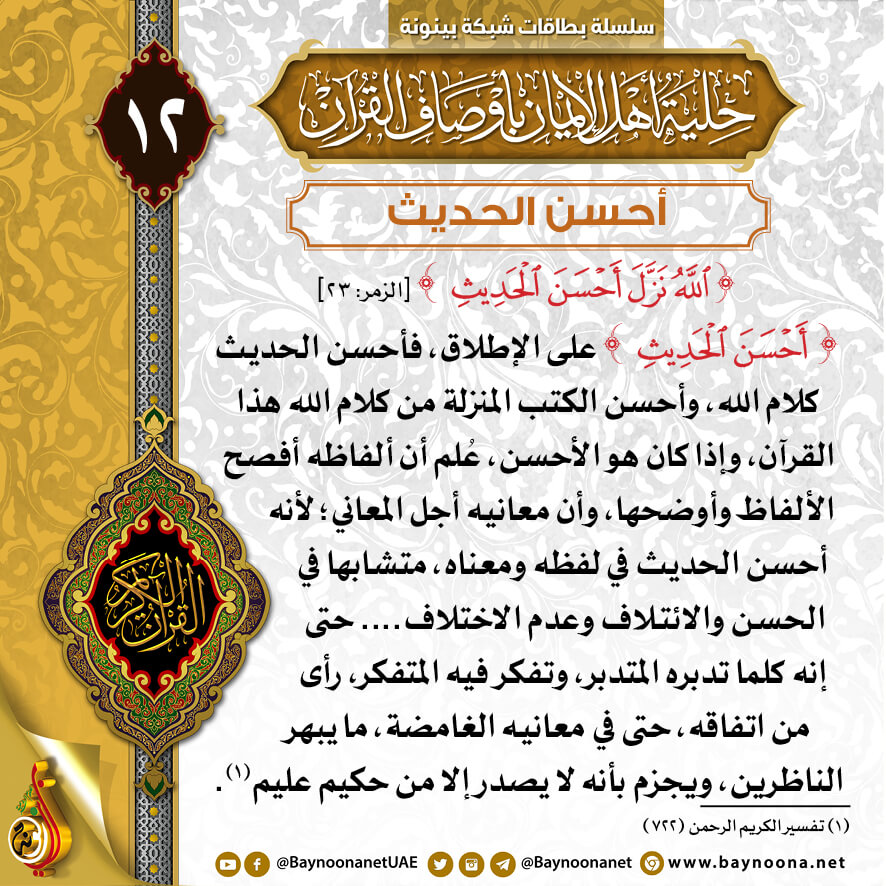 سلسلة بطاقات شبكة بينونة
حلية أهل الإيمان بأوصاف القرآن
١٢
أحسن الحديث
﴿ ٱللَّهُ نَزَّلَ أَحۡسَنَ ٱلۡحَدِيثِ ﴾ [الزمر: ٢٣]
﴿ أَحۡسَنَ ٱلۡحَدِيثِ ﴾ على الإطلاق، فأحسن الحديث
كلام الله، وأحسن الكتب المنزلة من كلام الله هذا
القرآن، وإذا كان هو الأحسن، عُلم أن ألفاظه أفصح
الألفاظ وأوضحها، وأن معانيه أجل المعاني؛ لأنه
أحسن الحديث في لفظه ومعناه، متشابها في
الحسن والائتلاف وعدم الاختلاف.... حتى
إنه كلما تدبره المتدبر، وتفكر فيه المتفكر، رأى
من اتفاقه، حتى في معانيه الغامضة، ما يبهر
الناظرين، ويجزم بأنه لا يصدر إلا من حكيم عليم(١).
القرآن الكريم
(١) تفسير الكريم الرحمن (٧٢٢)
@BaynoonanetUAE @Baynoonanet www.baynoona.net